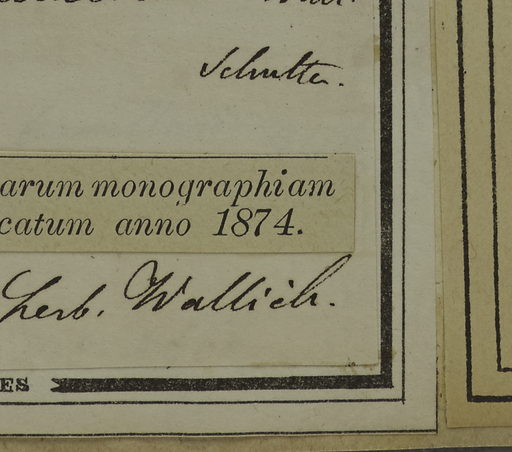 Schultes.
arum monographiam
catum anno 1874.
Herb. Wallich.
ES